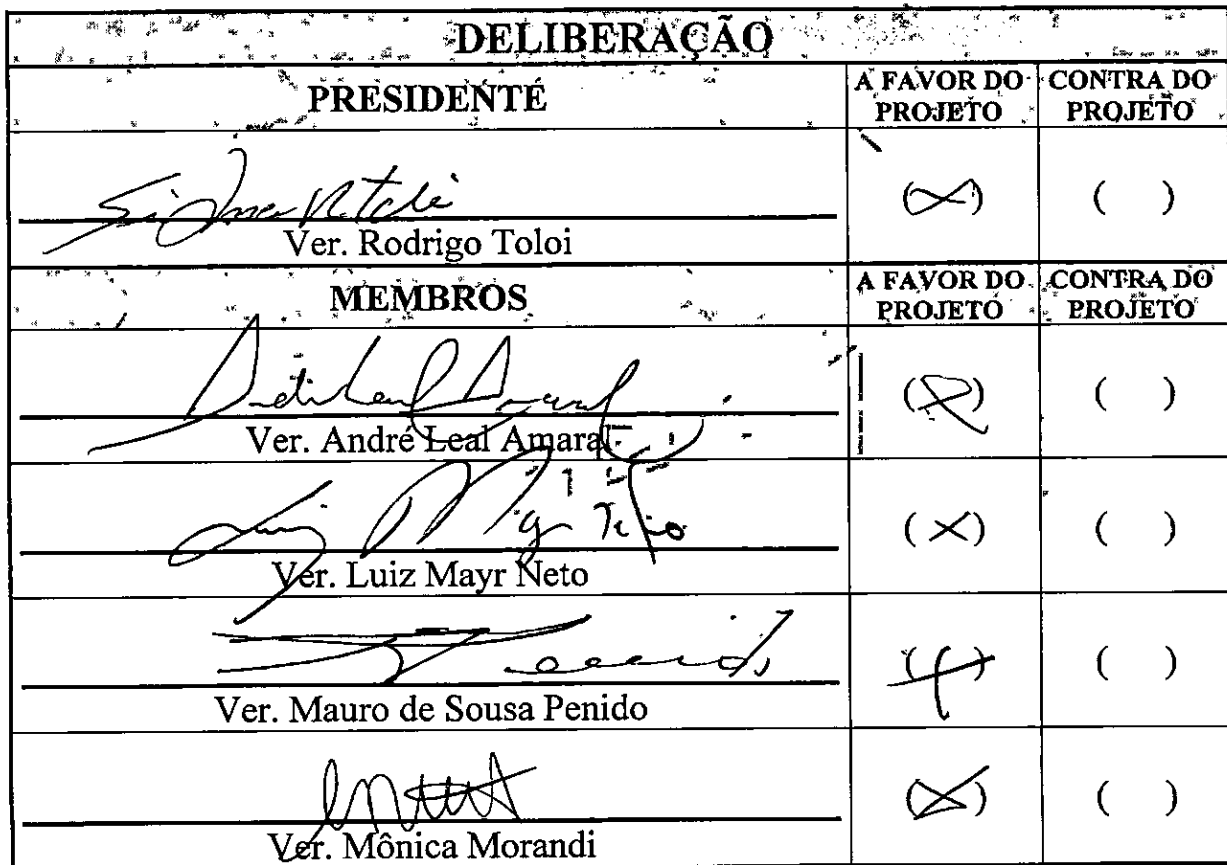 DELIBERAÇÃO
PRESIDENTE A FAVOR DO PROJETO CONTRA DO PROJETO
( X ) ( )
Ver. Rodrigo Toloi
MEMBROS A FAVOR DO PROJETO CONTRA DO PROJETO
( X ) ( )
Ver. André Leal Amaral
( X ) ( )
Ver. Luiz Mayr Neto
( X ) ( )
Ver. Mauro de Sousa Penido
( X ) ( )
Ver. Mônica Morandi